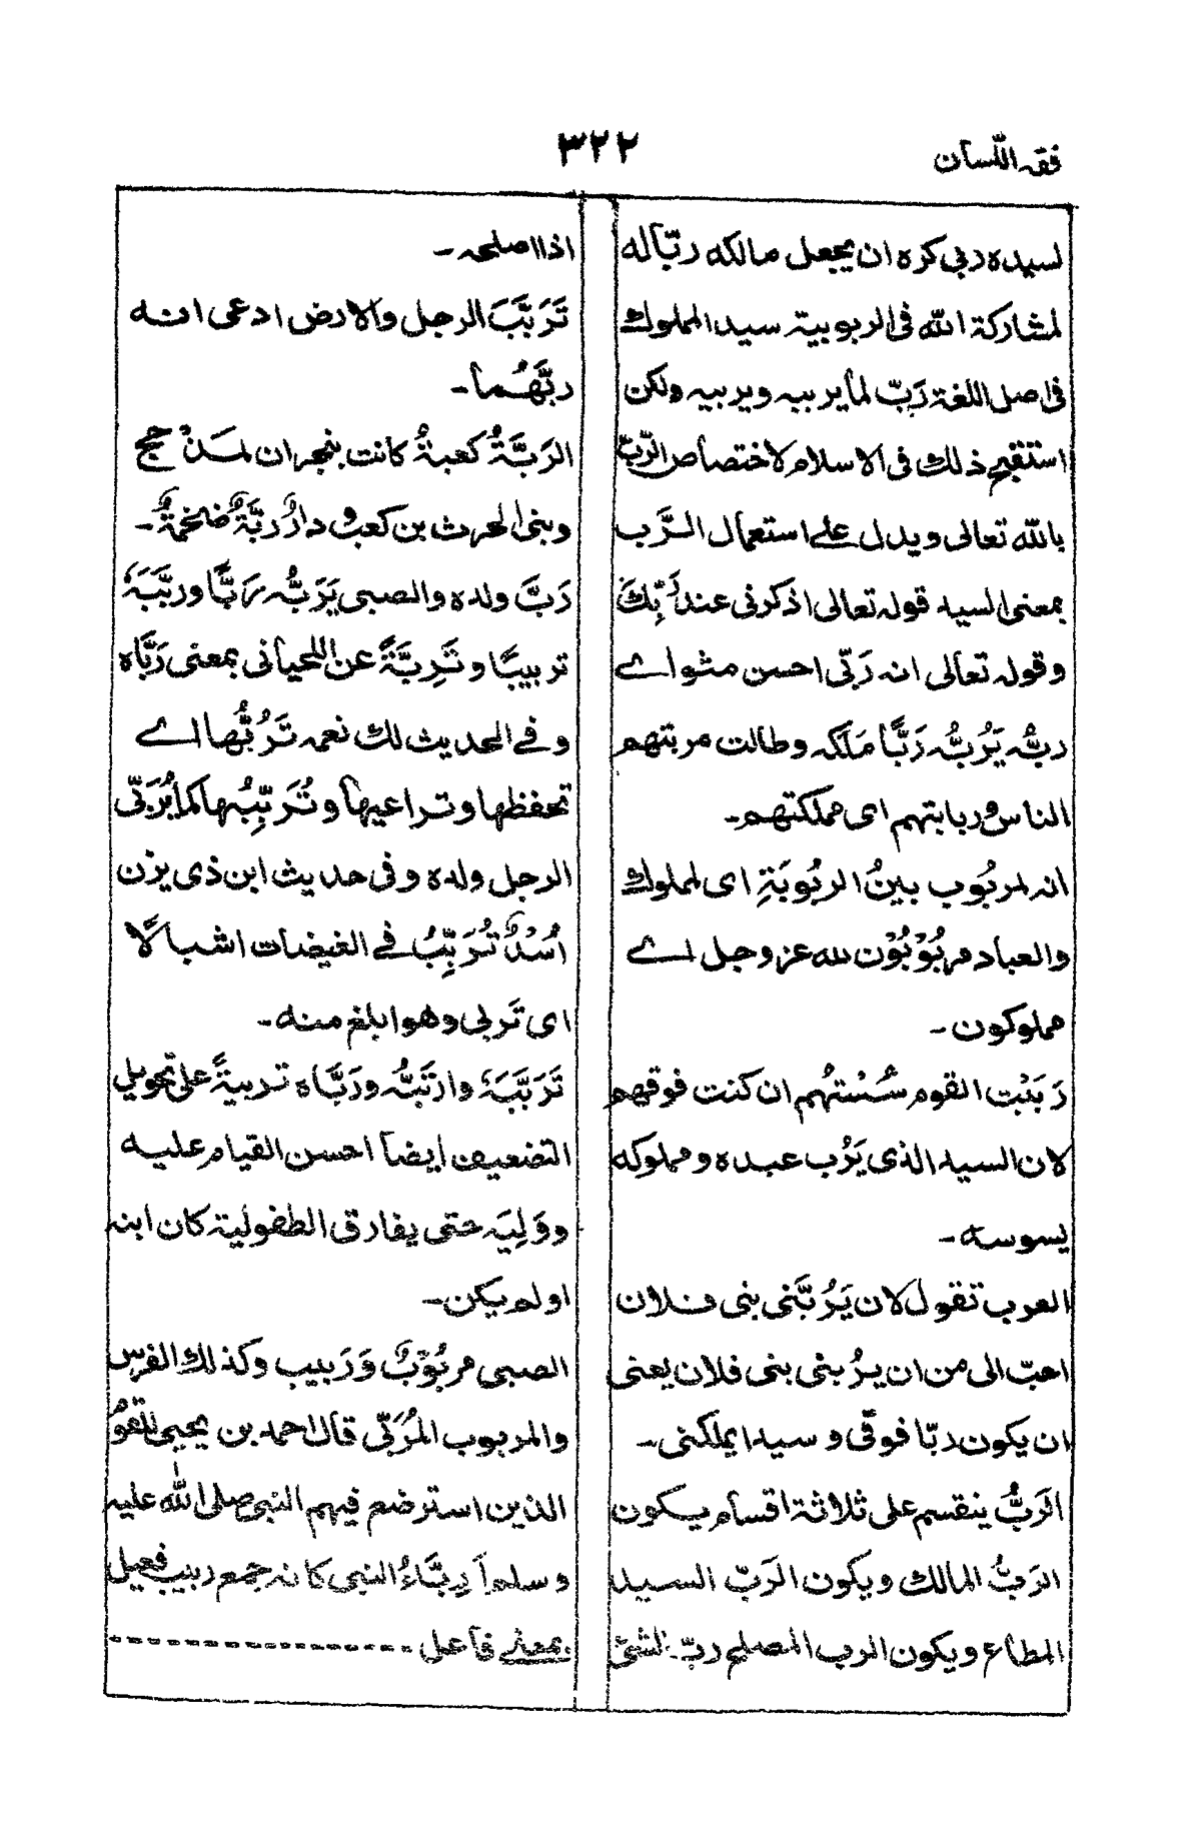 فقہ اللّسان
٣٢٢
لسیدہ ربی کرہ ان یجعل مالکہ ربّا لہ
لمشارکۃ اللّٰہ فی الربوبیۃ سید المملوک
فی اصل اللغۃ رَبّ لما یربیہ ویربیہ ولکن
استقبح ذلک فی الاسلام لاختصاص الرّبّ
باللّٰہ تعالی ویدل علے استعمال الرَّب
بمعنی السید قولہ تعالی اذکرنی عند رَبِّکَ
وقولہ تعالی انہ رَبّی احسن مثوا اے
ربُّہ یَرُبُّہ رَبًّا مَلَکہ وطالت مربتهم
الناس وربابتهم ای مملکتهم۔
انہ لمربُوب بینُ الربُوبَۃِ ای لمملوک
والعباد مربُوْبُوْن للہ عز وجل اے
مملوکون۔
رَبَبْت القوم سُسْتُهم ان کنت فوقهم
لان السید الذی یَرُب عبدہ ومملوکہ
یسوسہ۔
العرب تقول لان یَرُبَّنی بنی فلان
احبّ الی من ان یرُبنی بنی فلان یعنی
ان یکون ربّا فوقی و سیدا یملکنی۔
الرَبُّ ینقسم علی ثلاثۃ اقسام یکون
الرَبُّ المالک ویکون الرَبّ السید
المطاع ویکون الرب المصلح ربّ الشئ
اذا اصلحہ۔
تَرَبَّبَ الرجل والارض ادعی انہ
ربّهُما۔
الرَبَّۃُ کعبۃُ کانت بنجران لمَذْحج
وبنی الحرث بن کعب و دارٌ ربَّۃٌ ضخمۃٌ۔
رَبَّ ولدہ والصبی یَرَبُّہ رَبًّا وربَّبَہٗ
تربیبًا وتَرِبَّۃً عن اللحیانی بمعنی رَبَّاہ
وفے الحدیث لک نعمہ تَرُبُّها اے
تحفظها وتراعیها وتُرَبِّبُها کما یُرَبّی
الرجل ولدہ وفی حدیث ابن ذی یزن
اُسْدٌ تُرَبِّبُ فے الغیضات اشبالًا
ای تَربی وهو ابلغ منہ۔
تَرَبَّبَہٗ وارتَبَّہُ ورَبَّاہ تربیۃً علی تحویل
التضعیف ایضا احسن القیام علیہ
ووَلِیَہ حتی یفارق الطفولیۃ کان ابنہ
اولم یکن۔
الصبی مربُوبٌ وَرَبیب وکذلک الفرس
والمربوب المُرَبّی قال احمد بن یحیی للقوم
الذین استرضع فیهم النبی صلی اللّٰہ علیہ
وسلم اَرِبَّاءُ النبی کانہ جمع ربیب فعیل
بمعنے فاعل